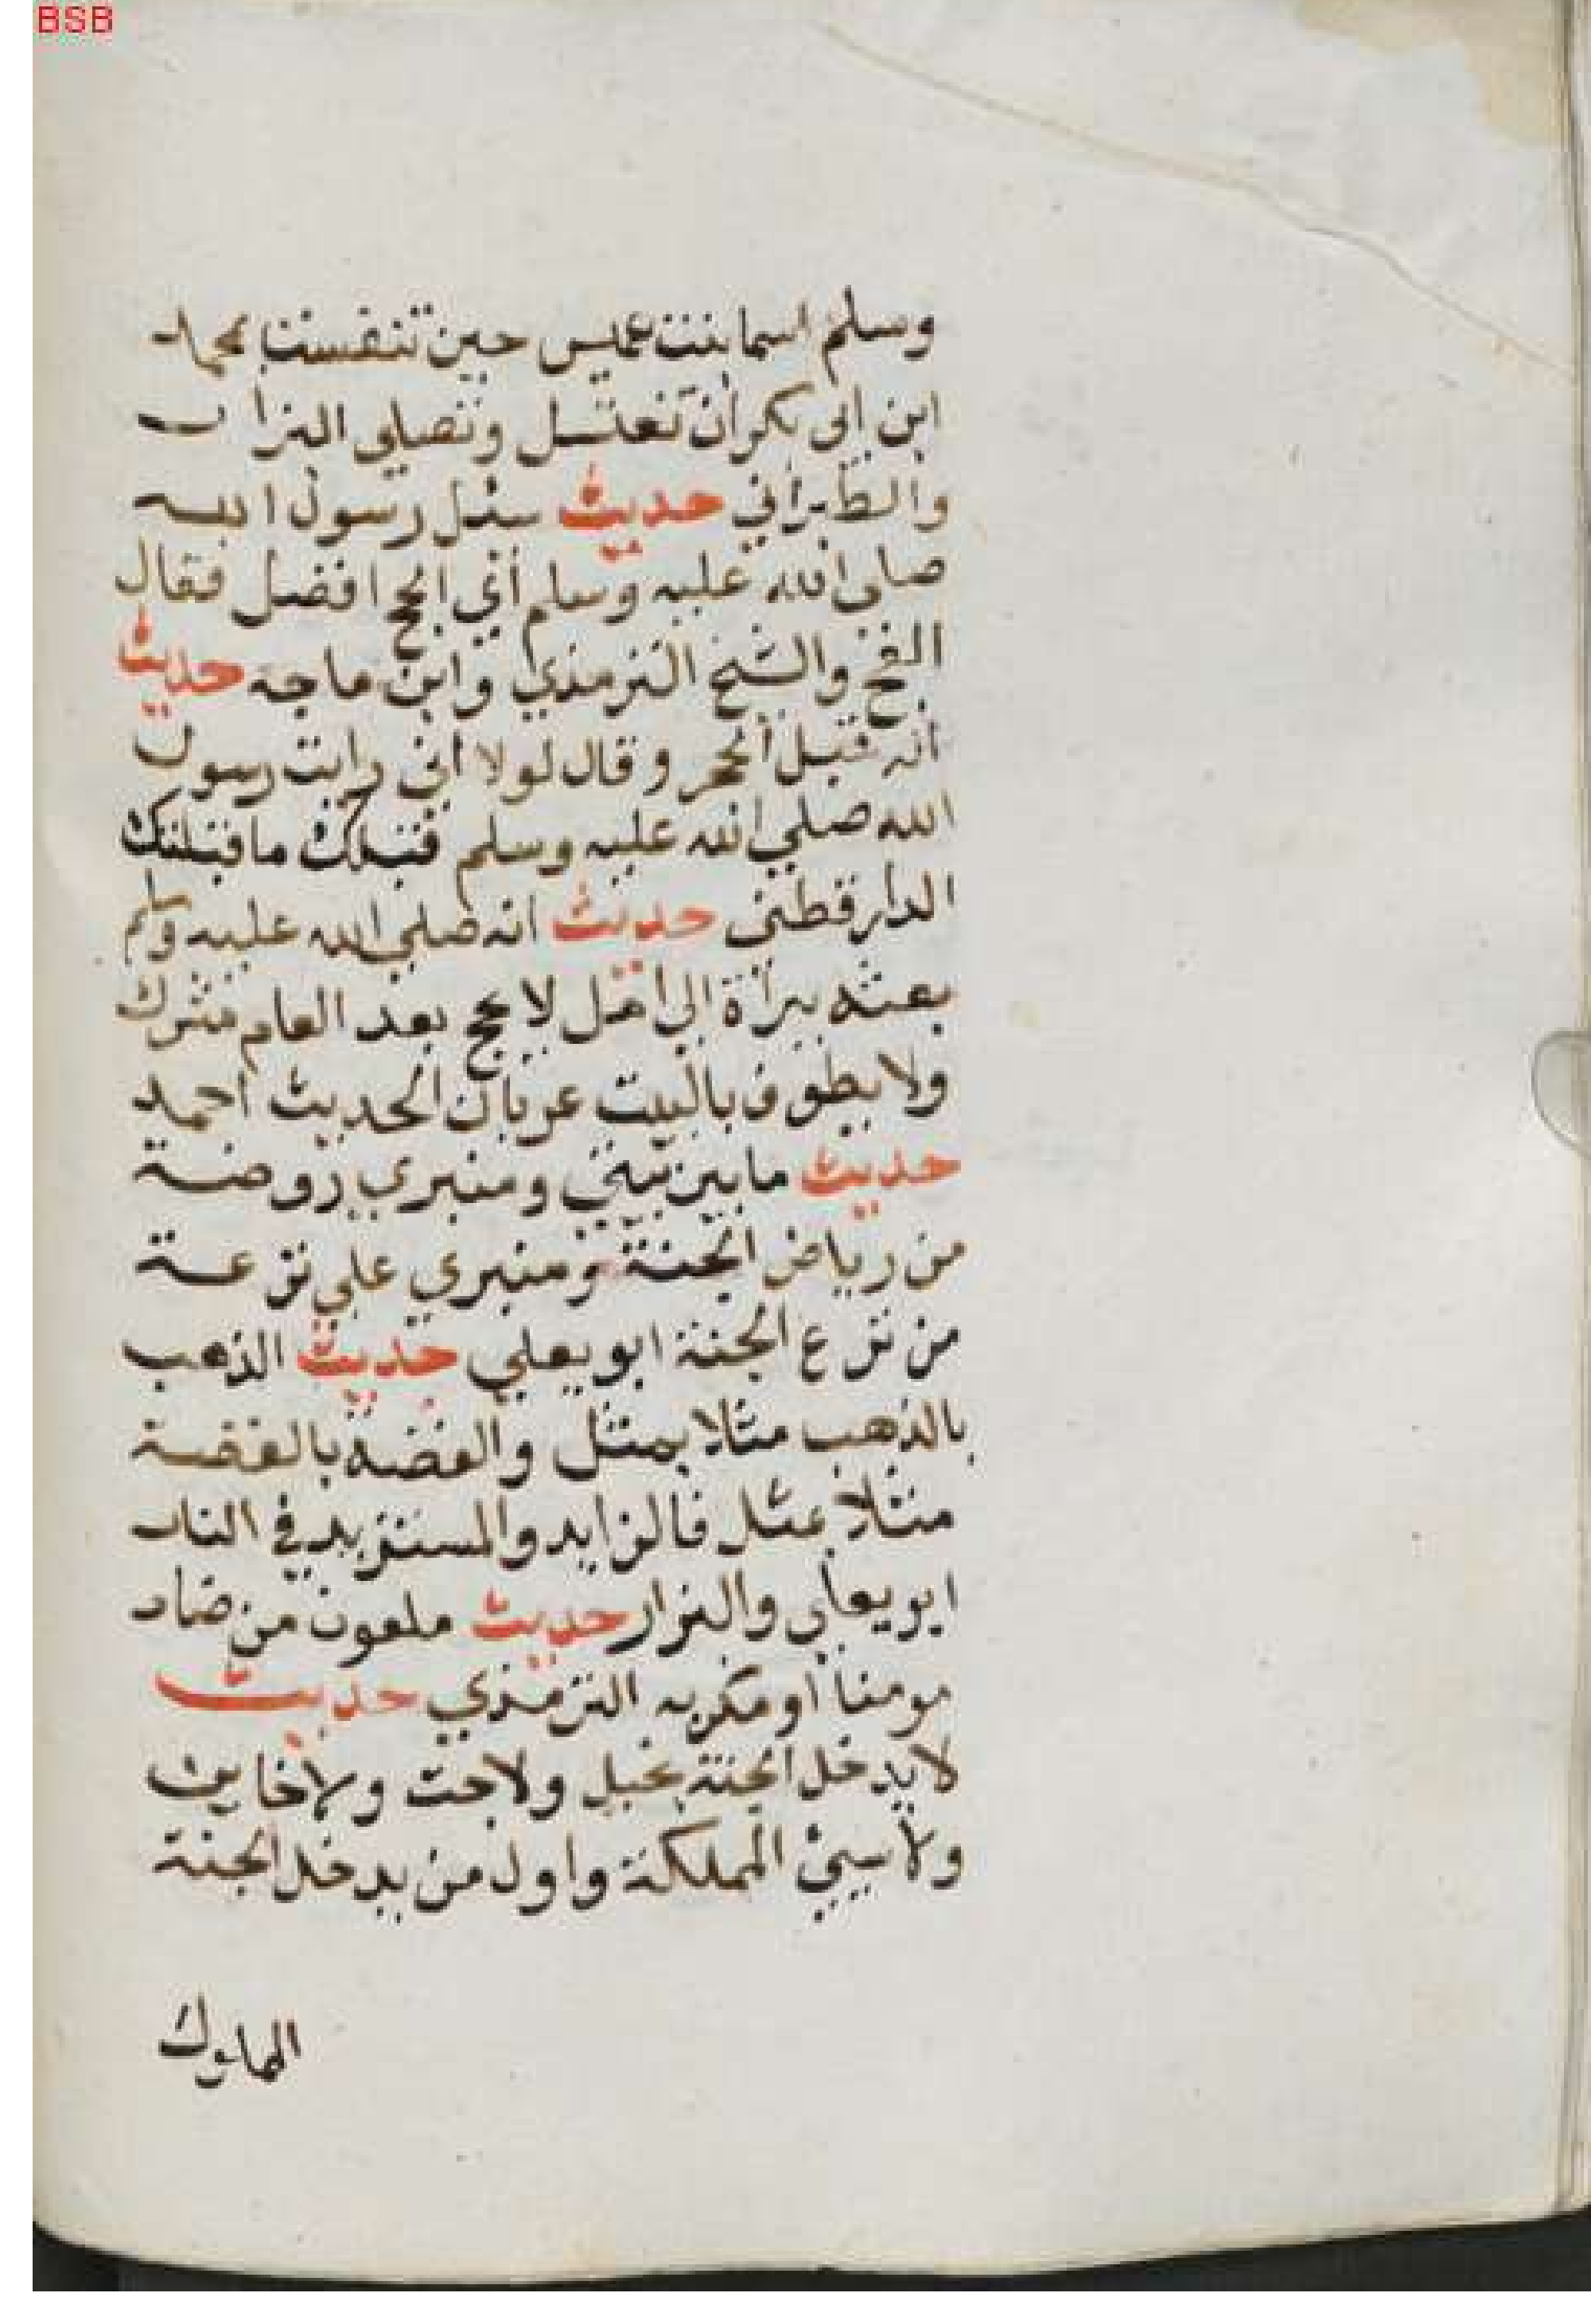 BSB
وسلم اسما بنت عميس حين تنفست بمحمد
ابن ابى بكر ان تغتسل وتصلى البزار
والطبراني حديث سئل رسول الله
صلى الله عليه وسلم أي الحج افضل فقال
العج والشج الترمذي وابن ماجه حديث
انه قبل الحجر وقال لولا انى رايت رسول
الله صلي الله عليه وسلم قبلك ما قبلتك
الدارقطني حديث انه صلي الله عليه وسلم
بعثه ببراة الى اهل لا يحج بعد العام مشرك
ولا يطوف بالبيت عريان الحديث احمد
حديث ما بين بيتي ومنبري روضة
من رياض الجنة ومنبري علي ترعة
من ترع الجنة ابو يعلي حديث الذهب
بالذهب مثلا بمثل والفضة بالفضة
مثلا بمثل فالزايد والمستزيد في النار
ابو يعلى والبزار حديث ملعون من ضار
مومنا او مكر به الترمذي حديث
لا يدخل الجنة بخيل ولا خب ولا خاين
ولا سيئ المملكة واول من يدخل الجنة
المملوك